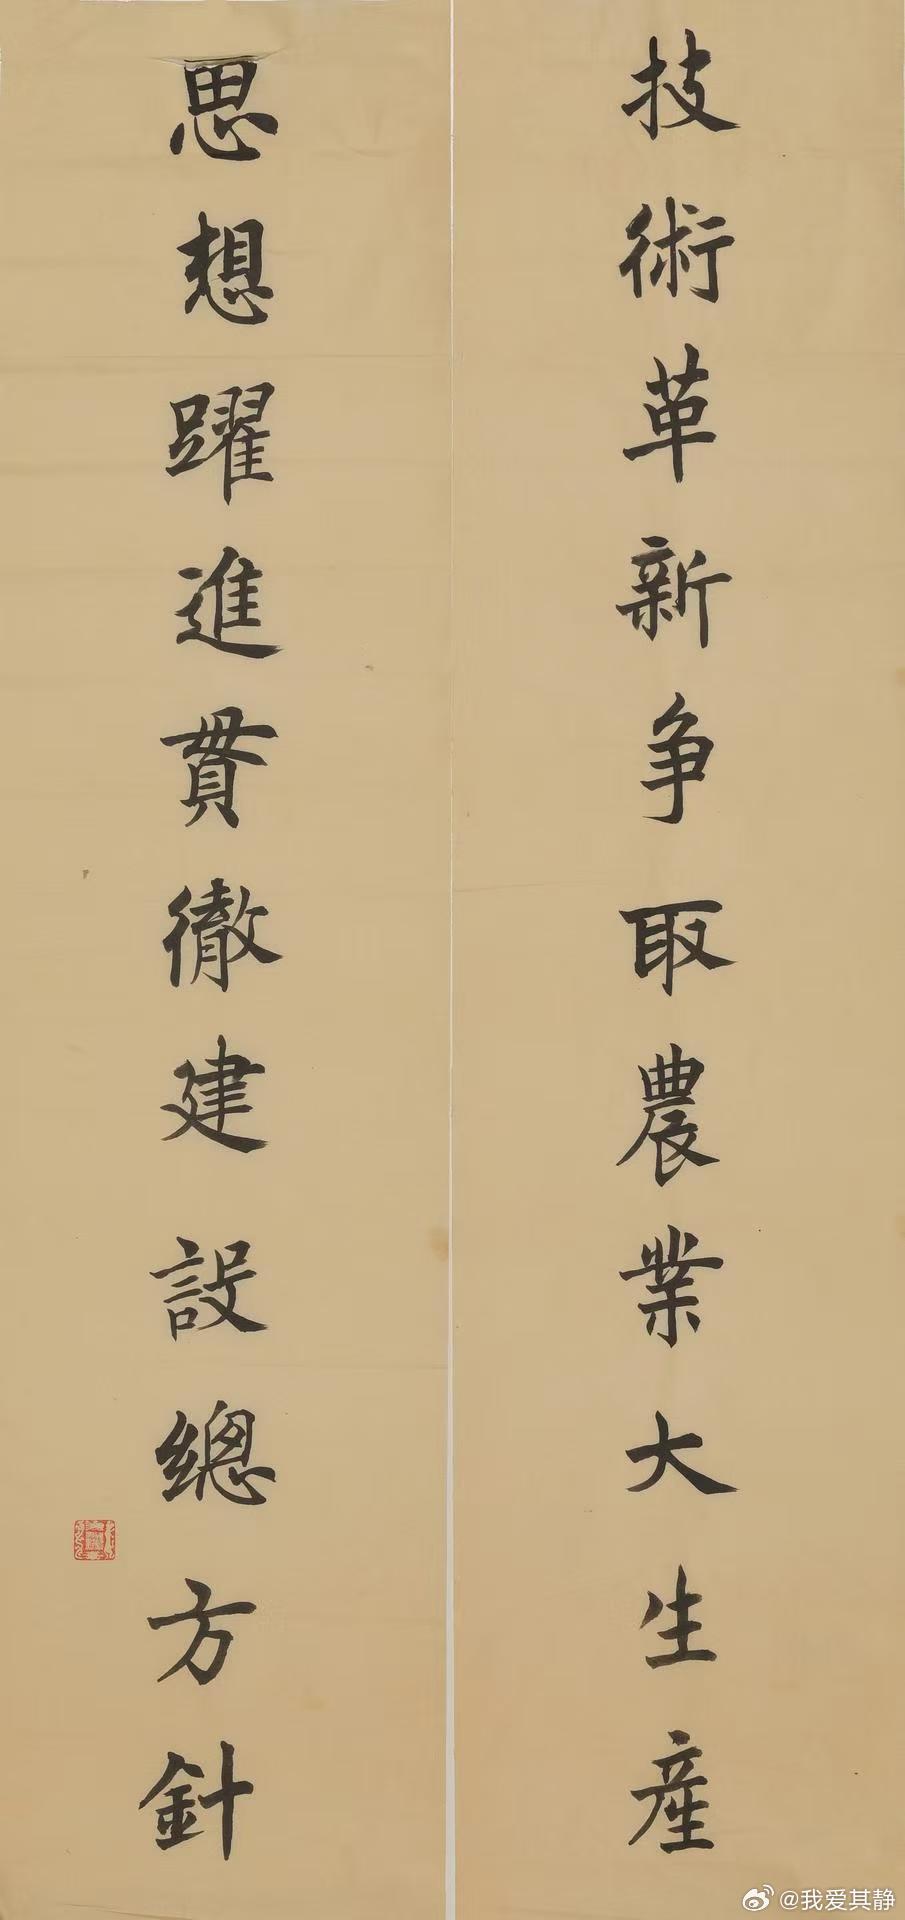 技術革新争取農業大生産
思想躍進貫徹建設總方針
@我爱其静